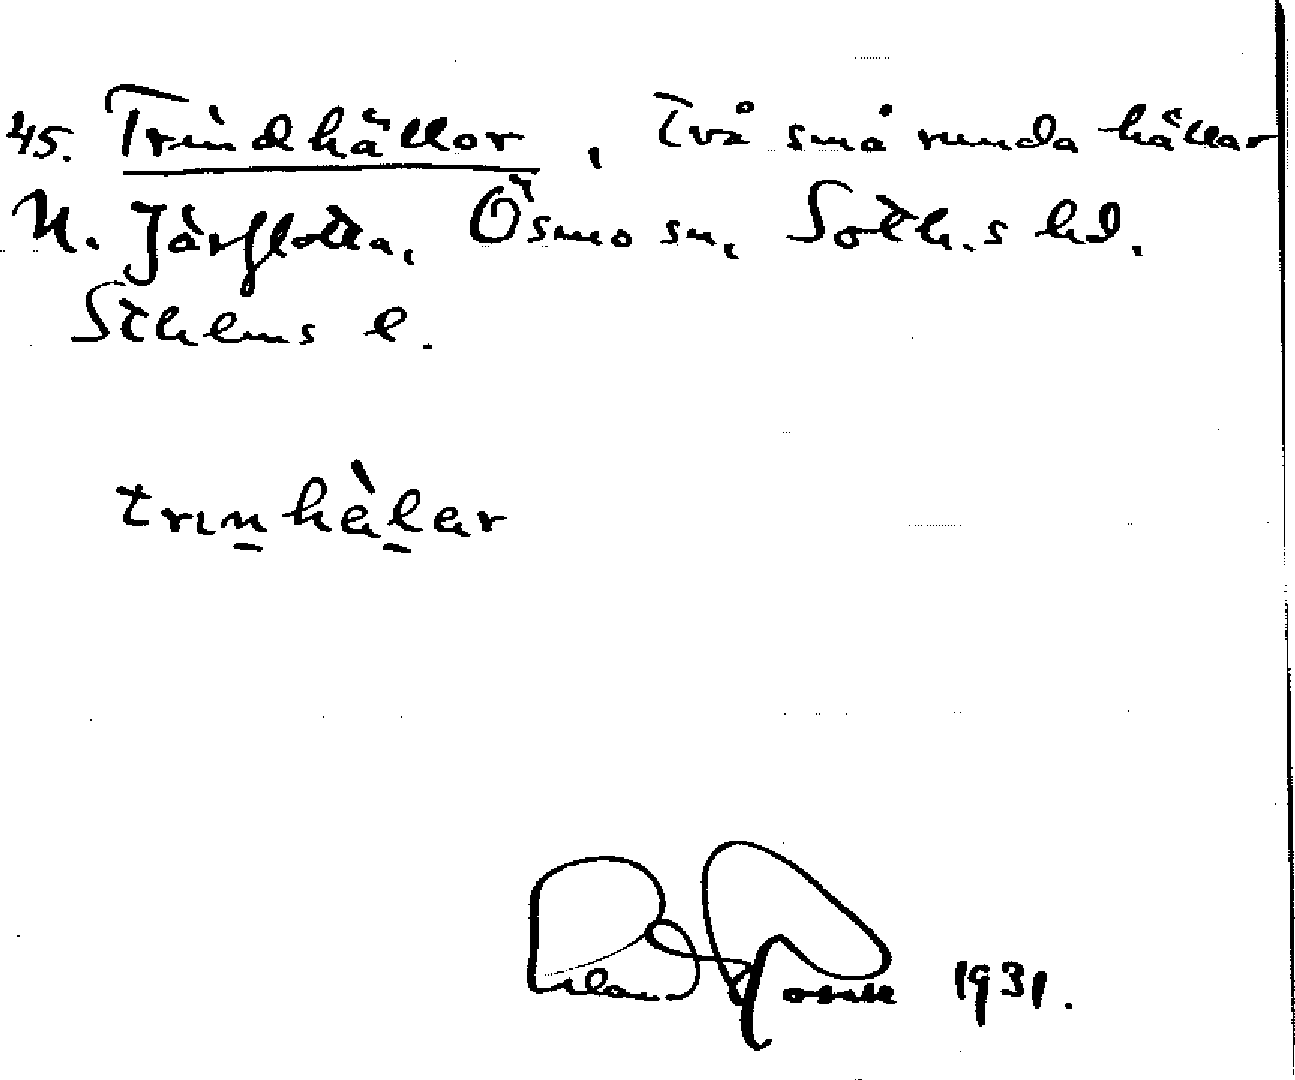 45. Trindhällor, Två små runda hällar
N. Järflotta, Ösmo sn, Soth.s hd.
Sthlms l.
trinhàlar
1931.